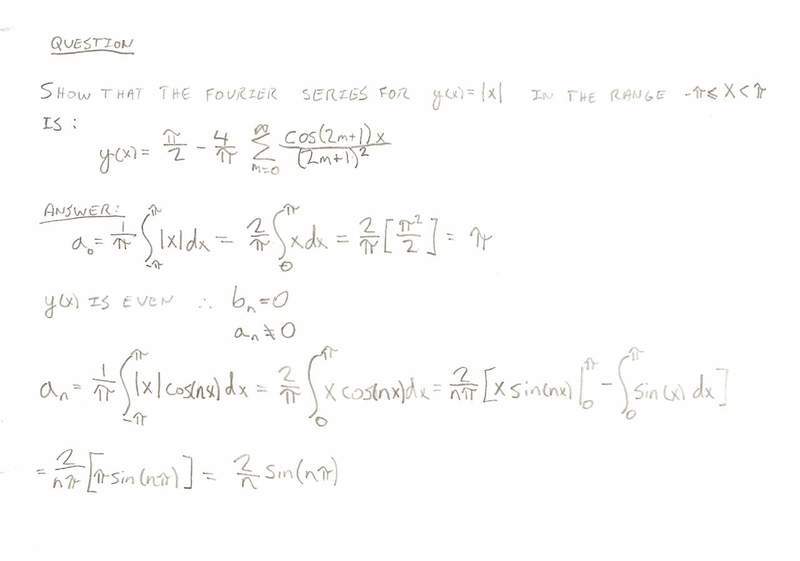 QUESTION
SHOW THAT THE FOURIER SERIES FOR y(x)=|x| IN THE RANGE -π≤X<π
IS:
y(x)= π/2 - 4/π ∑_{m=0}^{∞} cos(2m+1)x/(2m+1)^2
ANSWER:
a_0= 1/π ∫_{-π}^{π} |x|dx = 2/π ∫_0^π xdx = 2/π [π^2/2] = π
y(x) IS EVEN ∴ b_n=0
a_n≠0
a_n= 1/π ∫_{-π}^{π} |x|cos(nx)dx = 2/π ∫_0^π x cos(nx)dx = 2/nπ [x sin(nx)|_0^π - ∫_0^π sin(x) dx]
= 2/nπ [π sin(nπ)] = 2/n sin(nπ)